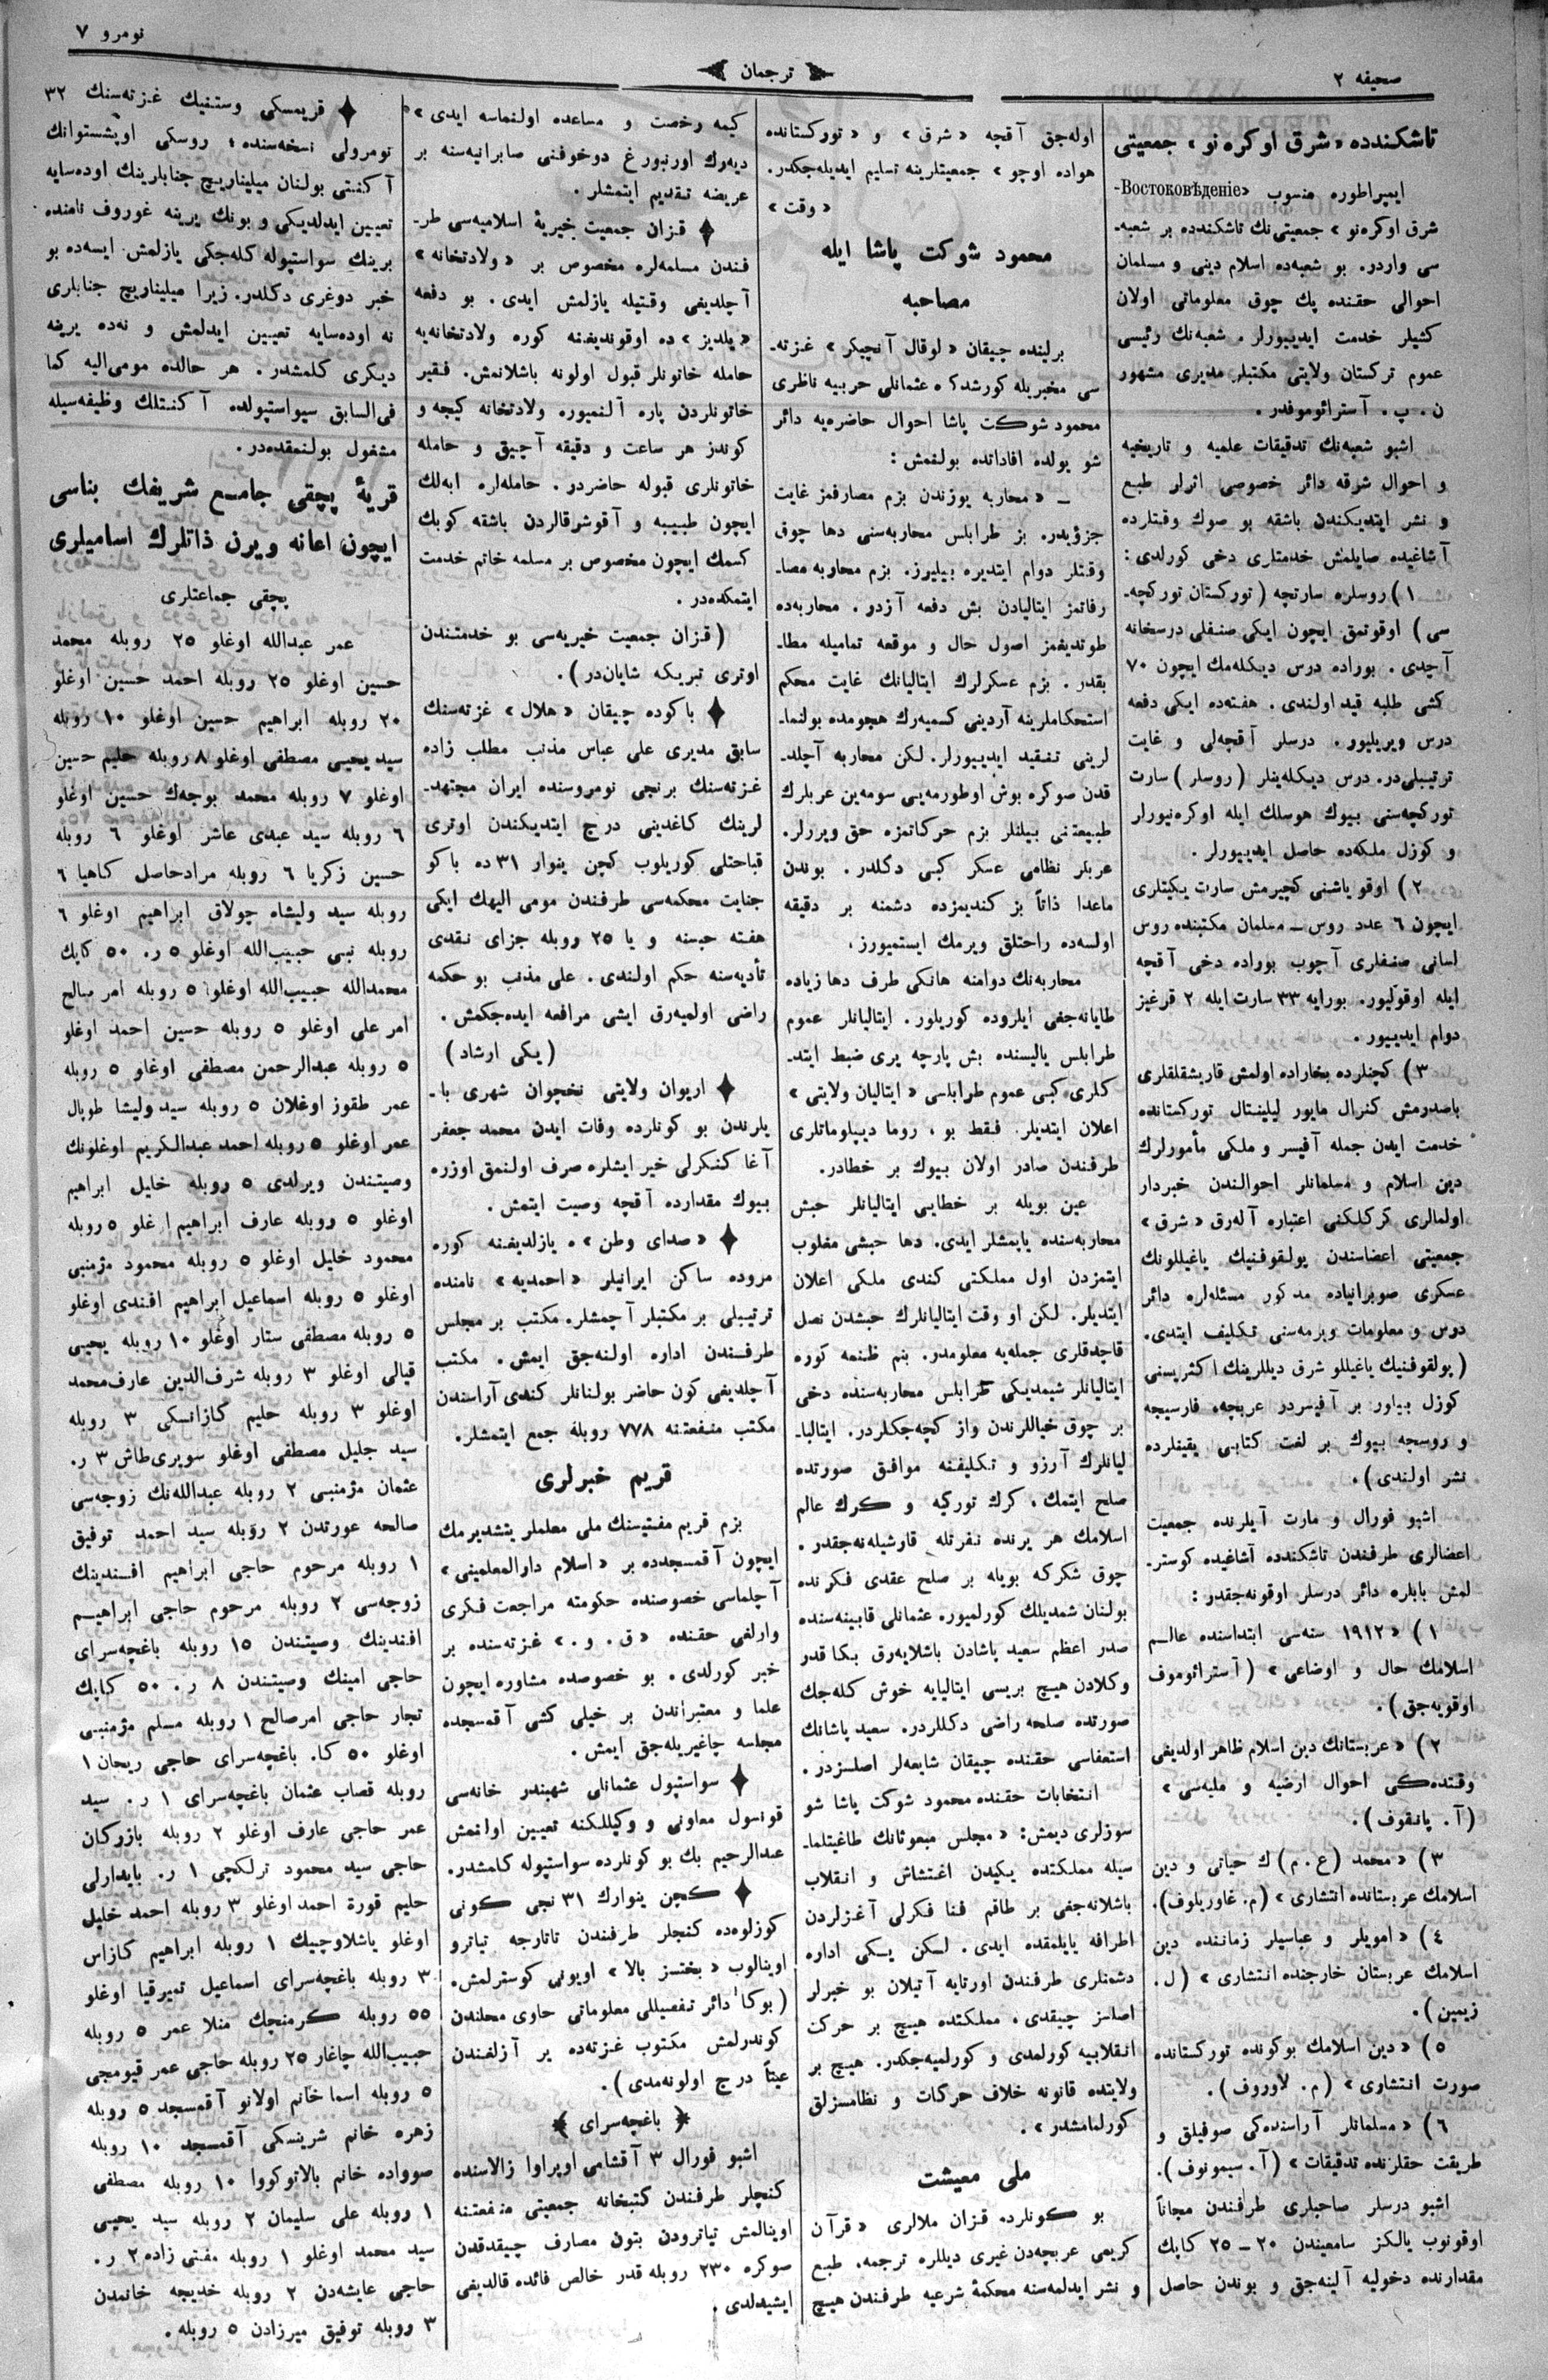 صحیفه ٢
ترجمان
نومرو ٧
تاشکندده «شرق اوکره‌نو» جمعیتی
ایمپراطوره منسوب «Востоковѣденіе-
شرق اوکره‌نو» جمعیتی‌نك تاشکندده بر شعبه-
سی واردر. بو شعبه‌ده اسلام دینی و مسلمان
احوالی حقنده پك چوق معلوماتی اولان
کشیلر خدمت ایدییورلر. شعبه‌نك رئیسی
عموم ترکستان ولایتی مکتبلر مدیری مشهور
ن. پ. آسترائوموفدر.
اشبو شعبه‌نك تدقیقات علمیه و تاریخیه
و احوال شرقه دائر خصوصی اثرلر طبع
و نشر ایتدیکندن باشقه بو صوك وقتلرده
آشاغیده صایلمش خدمتلری دخی کورلدی:
١) روسلره سارتچه (تورکستان تورکچه-
سی) اوقوتمق ایچون ایکی صنفلی درسخانه
آچدی. بوراده درس دیکله‌مك ایچون ٧٠
کشی طلبه قید اولندی. هفته‌ده ایکی دفعه
درس ویریلیور. درسلر آقچه‌لی و غایت
ترتیبلی‌در. درس دیکله‌ینلر (روسلر) سارت
تورکچه‌سنی بیوك هوسلك ایله اوکره‌نیورلر
و کوزل ملکه‌ده حاصل ایدییورلر.
٢) اوقو یاشنی کچیرمش سارت یکیتلری
ایچون ٦ عدد روس ــ مسلمان مکتبنده روس
لسانی صنفلری آچوب بوراده دخی آقچه
ایله اوقولیور. بورایه ٣٣ سارت ایله ٢ قرغیز
دوام ایدییور.
٣) کچنلرده بخاراده اولمش قاریشقلقلری
باصدرمش کنرال مایور لیلینتال تورکستانده
خدمت ایدن جمله آفیسر و ملکی مأمورلرك
دین اسلام و مسلمانلر احوالندن خبردار
اولمالری کرکلکنی اعتباره آله‌رق «شرق»
جمعیتی اعضاسندن پولقوفنیك یاغیللونك
عسکری صوبرانیاده مذکور مسئله‌لره دائر
درس و معلومات ویرمه‌سنی تکلیف ایتدی.
(پولقوفنیك یاغیللو شرق دیللرینك اکثریسنی
کوزل بیلور بر آفیسردر عربچه، فارسیجه
و روسجه بیوك بر لغت کتابی یقینلرده
نشر اولندی).
اشبو فورال و مارت آیلرنده جمعیت
اعضالری طرفندن تاشکندده آشاغیده کوستر-
لمش بابلره دائر درسلر اوقونه‌جقدر:
١) «١٩١٢ سنه‌سی ابتداسنده عالم
اسلامك حال و اوضاعی» (آسترائوموف
اوقویه‌جق).
٢) «عربستانك دین اسلام ظاهر اولدیغی
وقتده‌کی احوال ارضیه و ملیه‌سی»
(آ. پانقوف).
٣) «محمد (ع. م) ك حیاتی و دین
اسلامك عربستانده انتشاری» (م. غاوریلوف).
٤) «امویلر و عباسیلر زماننده دین
اسلامك عربستان خارجنده انتشاری» (ل.
زیمین).
٥) «دین اسلامك بوکونده تورکستانده
صورت انتشاری» (م. لاوروف).
٦) «مسلمانلر آراسنده‌کی صوفیلق و
طریقت حقلرنده تدقیقات» (آ. سیمونوف).
اشبو درسلر صاحبلری طرفندن مجاناً
اوقونوب یالکز سامعیندن ٢٠ ــ ٢٥ کاپك
مقدارنده دخولیه آلینه‌جق و بوندن حاصل
اوله‌جق آقچه «شرق» و «تورکستانده
هواده اوچو» جمعیتلرینه تسلیم ایدیله‌جکدر.
«وقت»
محمود شوکت پاشا ایله
مصاحبه
برلینده چیقان «لوقال آنچیکر» غزته-
سی مخبریله کورشدکده عثمانلی حربیه ناظری
محمود شوکت پاشا احوال حاضره‌یه دائر
شو یولده افاداتده بولنمش:
ــ «محاربه یوزندن بزم مصارفمز غایت
جزؤیدر. بز طرابلس محاربه‌سنی دها چوق
وقتلر دوام ایتدیره بیلیرز. بزم محاربه مصا-
رفاتمز ایتالیادن بش دفعه آزدر. محاربه‌ده
طوتدیغمز اصول حال و موقعه تمامیله مطا-
بقدر. بزم عسکرلرك ایتالیانك غایت محکم
استحکاملرینه آردینی کسمیه‌رك هجومده بولنما-
لرینی تنقید ایدییورلر. لکن محاربه آچلد-
قدن صوکره بوش اوطورمه‌یی سومه‌ین عربلرك
طبیعتنی بیلنلر بزم حرکاتمزه حق ویررلر.
عربلر نظامی عسکر کبی دکلدر. بوندن
ماعدا ذاتاً بز کندیمزده دشمنه بر دقیقه
اولسه‌ده راحتلق ویرمك ایستمیورز.
محاربه‌نك دوامنه هانکی طرف دها زیاده
طایانه‌جغی ایلروده کوریلور. ایتالیانلر عموم
طرابلس یالیسنده بش پارچه یری ضبط ایتد-
کلری کبی عموم طرابلسی «ایتالیان ولایتی»
اعلان ایتدیلر. فقط بو، روما دیپلوماتلری
طرفندن صادر اولان بیوك بر خطادر.
عین بویله بر خطایی ایتالیانلر حبش
محاربه‌سنده یاپمشلر ایدی. دها حبشی مغلوب
ایتمزدن اول مملکتی کندی ملکی اعلان
ایتدیلر. لکن او وقت ایتالیانلرك حبشدن نصل
قاچدقلری جمله‌یه معلومدر. بنم ظنمه کوره
ایتالیانلر شیمدیکی طرابلس محاربه‌سنده دخی
بر چوق خیاللرندن واز کچه‌جکلردر. ایتالیا-
لیانلرك آرزو و تکلیفنه موافق صورتده
صلح ایتمك، کرك تورکیه و کرك عالم
اسلامك هر یرنده نفرتله قارشیله‌نه‌جقدر.
چوق شکرکه بویله بر صلح عقدی فکرنده
بولنان شمدیلك کورلمیور. عثمانلی قابینه‌سنده
صدر اعظم سعید پاشادن باشلایه‌رق بکا قدر
وکلادن هیچ بریسی ایتالیایه خوش کله‌جك
صورتده صلحه راضی دکللردر. سعید پاشانك
استعفاسی حقنده چیقان شایعه‌لر اصلسزدر.
انتخابات حقنده محمود شوکت پاشا شو
سوزلری دیمش: «مجلس مبعوثانك طاغیتلما-
سیله مملکتده یکیدن اغتشاش و انقلاب
باشلانه‌جغی بر طاقم فنا فکرلی آغزلردن
اطرافه یایلمقده ایدی. لکن یکی اداره
دشمنلری طرفندن اورتایه آتیلان بو خبرلر
اصلسز چیقدی. مملکتده هیچ بر حرکت
انقلابیه کورلمدی و کورلمیه‌جکدر. هیچ بر
ولایتده قانونه خلاف حرکات و نظامسزلق
کورلمامشدر».
ملی معیشت
بو کونلرده قزان ملالری «قرآن
کریمی عربچه‌دن غیری دیللره ترجمه، طبع
و نشر ایدلمه‌سنه محکمۀ شرعیه طرفندن هیچ
کیمه رخصت و مساعده اولنماسه ایدی»
دیه‌رك اورنبورغ دوخوفنی صابرانیه‌سنه بر
عریضه تقدیم ایتمشلر.
قزان جمعیت خیریۀ اسلامیه‌سی طر-
فندن مسلمه‌لره مخصوص بر «ولادتخانه»
آچلدیغی وقتیله یازلمش ایدی. بو دفعه
«یلدیز» ده اوقوندیغنه کوره ولادتخانه‌یه
حامله خاتونلر قبول اولونه باشلانمش. فقیر
خاتونلردن پاره آلنمیوره ولادتخانه کیجه و
کوندز هر ساعت و دقیقه آچیق و حامله
خاتونلری قبوله حاضردر. حامله‌لره ابه‌لك
ایچون طبیبه و آقوشرقالردن باشقه کوبك
کسمك ایچون مخصوص بر مسلمه خانم خدمت
ایتمکده‌در.
(قزان جمعیت خیریه‌سی بو خدمتندن
اوتری تبریکه شایان‌در).
باکوده چیقان «هلال» غزته‌سنك
سابق مدیری علی عباس مذنب مطلب زاده
غزته‌سنك برنجی نومروسنده ایران مجتهد-
لرینك کاغدینی درج ایتدیکندن اوتری
قباحتلی کوریلوب کچن ینوار ٣١ ده باکو
جنایت محکمه‌سی طرفندن مومی الیهك ایکی
هفته حبسنه و یا ٢٥ روبله جزای نقدی
تأدیه‌سنه حکم اولندی. علی مذنب بو حکمه
راضی اولمیه‌رق ایشی مرافعه ایده‌جکمش.
(یکی ارشاد)
اریوان ولایتی نخچوان شهری با-
یلرندن بو کونلرده وفات ایدن محمد جعفر
آغا کنکرلی خیر ایشلره صرف اولنمق اوزره
بیوك مقدارده آقچه وصیت ایتمش.
«صدای وطن» ه یازلدیغنه کوره
مروده ساکن ایرانیلر «احمدیه» نامنده
ترتیبلی بر مکتبلر آچمشلر. مکتب بر مجلس
طرفندن اداره اولنه‌جق ایمش. مکتب
آچلدیغی کون حاضر بولنانلر کندی آراسندن
مکتب منفعتنه ٧٧٨ روبله جمع ایتمشلر.
قریم خبرلری
بزم قریم مفتیسنك ملی معلملر یتشدیرمك
ایچون آقمسجدده بر «اسلام دارالمعلمینی»
آچلماسی خصوصنده حکومته مراجعت فکری
وارلغی حقنده «ق. و.» غزته‌سنده بر
خبر کورلدی. بو خصوصده مشاوره ایچون
علما و معتبراندن بر خیلی کشی آقمسجده
مجلسه چاغیریله‌جق ایمش.
سواستپول عثمانلی شهبندر خانه‌سی
قونسول معاونی و وکیللکنه تعیین اولنمش
عبدالرحیم بك بو کونلرده سواستپوله کلمشدر.
کچن ینوارك ٣١ نجی کونی
کوزلوه‌ده کنجلر طرفندن تاتارجه تیاترو
اوینالوب «بختسز بالا» اویونی کوسترلمش.
(بوکا دائر تفصیللی معلوماتی حاوی محلندن
کوندرلمش مکتوب غزته‌ده یر آزلغندن
عیناً درج اولونه‌مدی).
﴿ باغچه‌سرای ﴾
اشبو فورال ٣ آقشامی اوپراوا زالاسنده
کنجلر طرفندن کتبخانه جمعیتی منفعتنه
اوینالمش تیاترودن بتون مصارف چیقدقدن
صوکره ٢٣٠ روبله قدر خالص فائده قالدیغی
ایشیدلدی.
قریمسکی وستنیك غزته‌سنك ٣٢
نومرولی نسخه‌سنده: روسکی اوبشستوانك
آکنتی بولنان میلیناریچ جنابلرینك اوده‌سایه
تعیین ایدلدیکی و بونك یرینه غوروف نامنده
برینك سواستپوله کله‌جکی یازلمش ایسه‌ده بو
خبر دوغری دکلدر. زیرا میلیناریچ جنابلری
نه اوده‌سایه تعیین ایدلمش و نه‌ده یرینه
دیکری کلمشدر. هر حالده مومی‌الیه کما
فی‌السابق سیواستپولده آکنتلك وظیفه‌سیله
مشغول بولنمقده‌در.
قریۀ پچقی جامع شریفك بناسی
ایچون اعانه ویرن ذاتلرك اسامیلری
پچقی جماعتلری
عمر عبدالله اوغلو ٢٥ روبله محمد
حسین اوغلو ٢٥ روبله احمد حسین اوغلو
٢٠ روبله ابراهیم حسین اوغلو ١٠ روبله
سید یحیی مصطفی اوغلو ٨ روبله حلیم حسین
اوغلو ٧ روبله محمد بوجه‌ك حسین اوغلو
٦ روبله سید عبدی عاشر اوغلو ٦ روبله
حسین زکریا ٦ روبله مرادحاصل کاهیا ٦
روبله سید ولیشاه چولاق ابراهیم اوغلو ٦
روبله نبی حبیب‌الله اوغلو ٥ ر. ٥٠ کاپك
محمدالله حبیب‌الله اوغلو ٥ روبله امر صالح
امر علی اوغلو ٥ روبله حسین احمد اوغلو
٥ روبله عبدالرحمن مصطفی اوغلو ٥ روبله
عمر طقوز اوغلان ٥ روبله سید ولیشا طوپال
عمر اوغلو ٥ روبله احمد عبدالکریم اوغلونك
وصیتندن ویرلدی ٥ روبله خلیل ابراهیم
اوغلو ٥ روبله عارف ابراهیم اوغلو ٥ روبله
محمود خلیل اوغلو ٥ روبله محمود مژمنبی
اوغلو ٥ روبله اسماعیل ابراهیم افندی اوغلو
٥ روبله مصطفی ستار اوغلو ١٠ روبله یحیی
قیالی اوغلو ٣ روبله شرف‌الدین عارف‌محمد
اوغلو ٣ روبله حلیم کازانسکی ٣ روبله
سید جلیل مصطفی اوغلو سویری‌طاش ٣ ر.
عثمان مژمنبی ٢ روبله عبدالله‌نك زوجه‌سی
صالحه عورتدن ٢ روبله سید احمد توفیق
١ روبله مرحوم حاجی ابراهیم افندینك
زوجه‌سی ٢ روبله مرحوم حاجی ابراهیم
افندینك وصیتندن ١٥ روبله باغچه‌سرای
حاجی امینك وصیتندن ٨ ر. ٥٠ کاپك
تجار حاجی امرصالح ١ روبله مسلم مژمنبی
اوغلو ٥٠ کا. باغچه‌سرای حاجی ریحان ١
روبله قصاب عثمان باغچه‌سرای ١ ر. سید
عمر حاجی عارف اوغلو ٢ روبله بازرکان
حاجی سید محمود ترلکچی ١ ر. بایدارلی
حلیم قورة احمد اوغلو ٣ روبله احمد خلیل
اوغلو یاشلاوچیك ١ روبله ابراهیم کازاس
٣ روبله باغچه‌سرای اسماعیل تمیرقیا اوغلو
٥٥ روبله کرمنچك منلا عمر ٥ روبله
حبیب‌الله چاغار ٢٥ روبله حاجی عمر قیومجی
٥ روبله اسما خانم اولانو آقمسجد ٥ روبله
زهره خانم شرینسکی آقمسجد ١٠ روبله
صوواده خانم بالاتوکووا ١٠ روبله مصطفی
١ روبله علی سلیمان ٢ روبله سید یحیی
سید محمد اوغلو ١ روبله مفتی زاده ٢ ر.
حاجی عایشه‌دن ٢ روبله خدیجه خانمدن
٣ روبله توفیق میرزادن ٥ روبله.